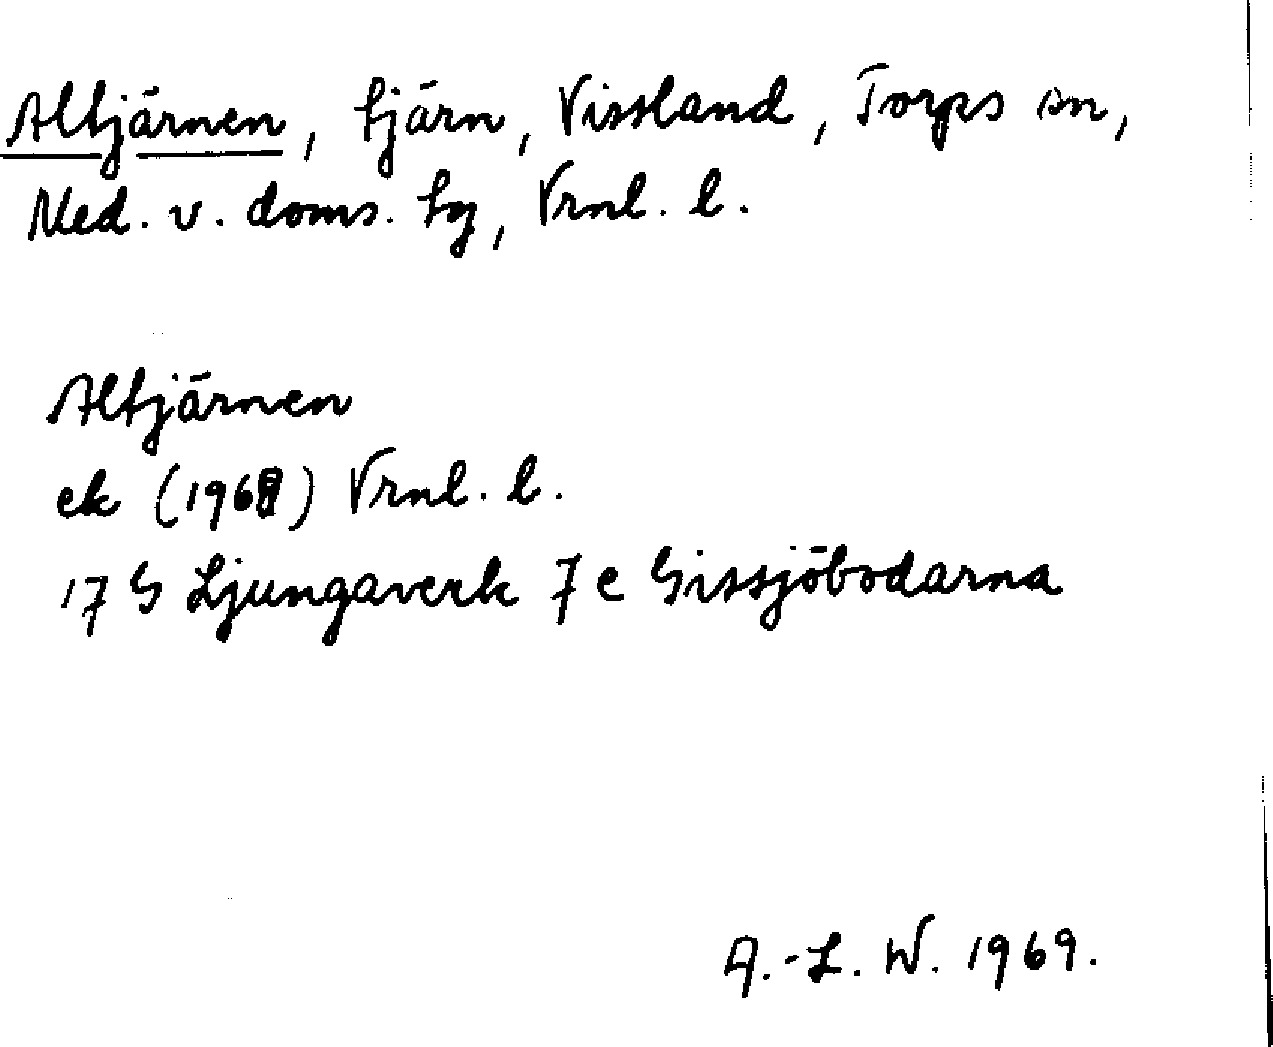 Altjärnen, tjärn, Vissland, Torps sn,
Med. v. doms. tg, Vrnl. l.
Altjärnen
ek (1968) Vrnl. l.
17 G Ljungaverk 7 e Gissjöbodarna
A.-L. W. 1969.